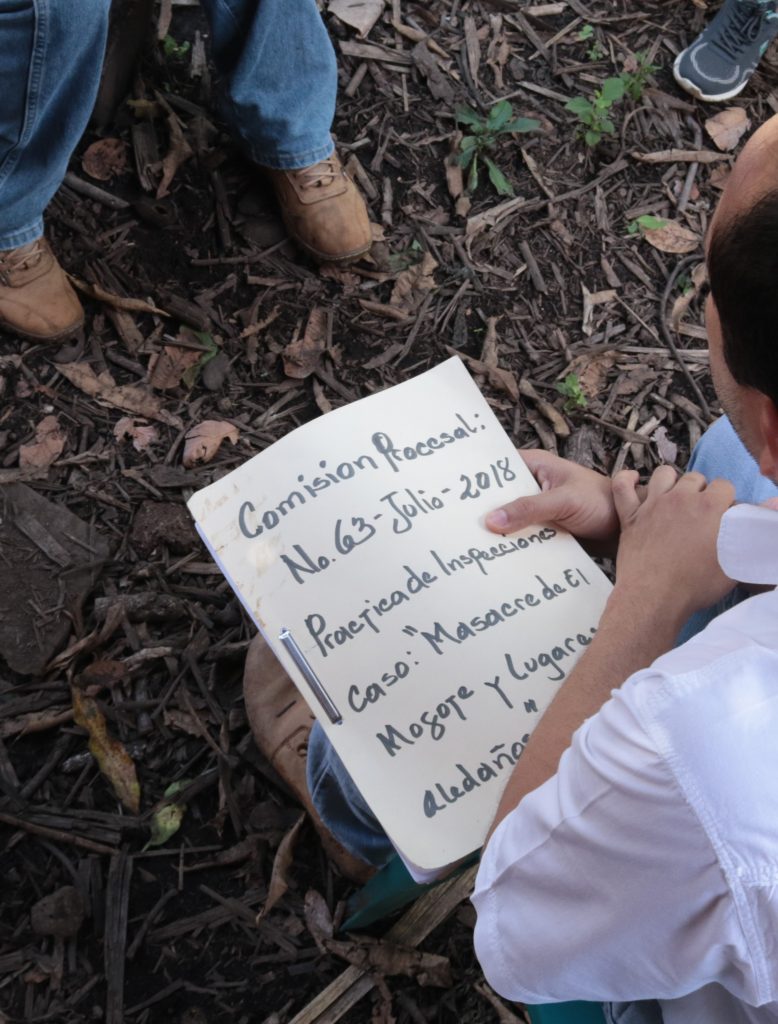 Comision Procesal:
No. 63-Julio-2018
Practica de Inspecciones
caso: "Masacre de El
Mogote y Lugares
aledaños"